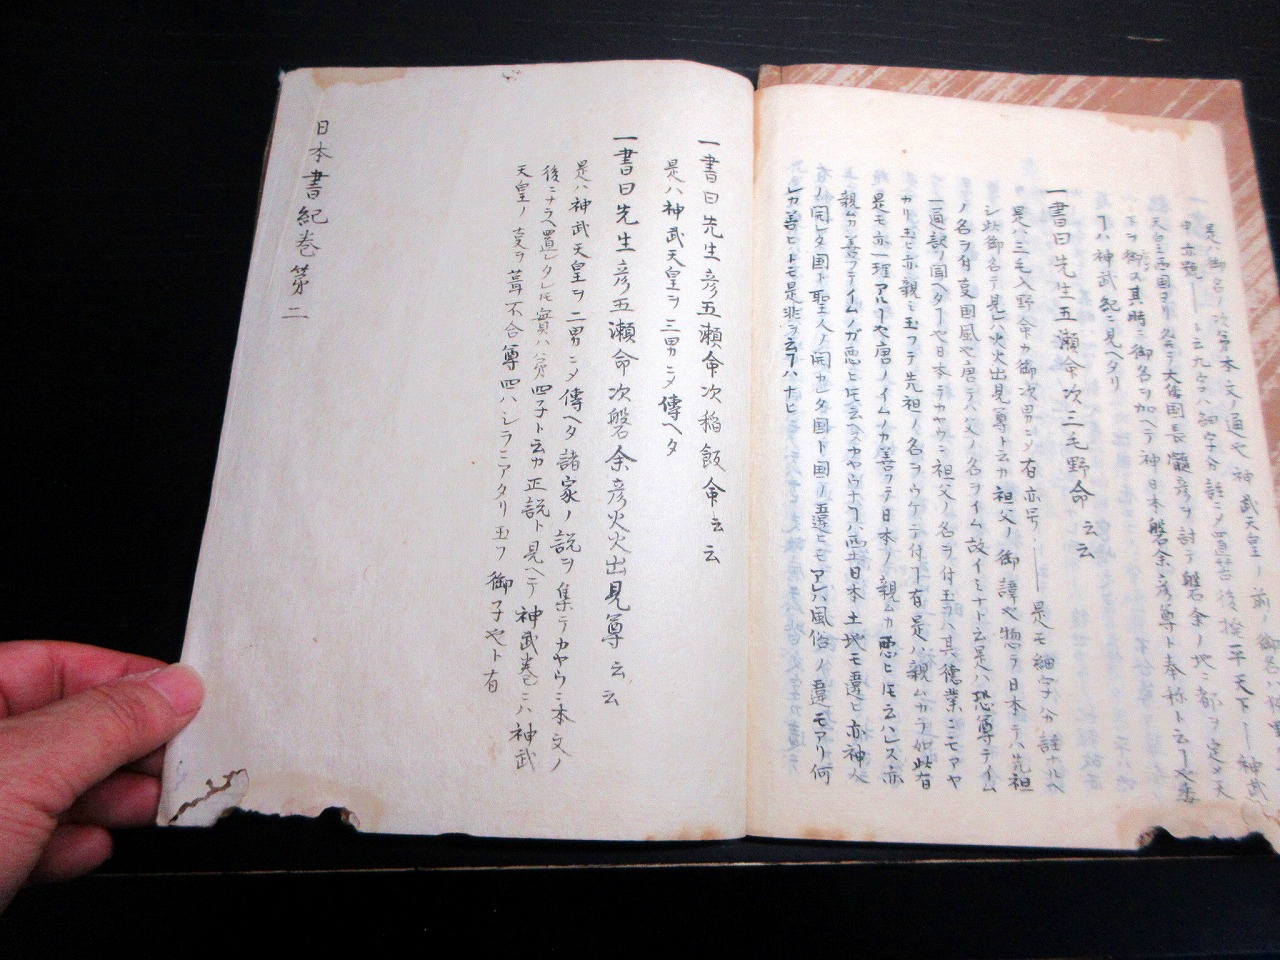 是ハ御名ノ次第本文ノ通也神武天皇ノ前ノ御名ハ
中亦號――ト云九字ハ細字分註ニメ置苔後撥平天下――神武
天皇西国ヨリ発テ大倭国長髄彦ヲ討テ磐余ノ地ニ都ヲ定メ天
下ヲ御ス其時ニ御名ヲ加ヘテ神日本磐余彦尊ト奉称ト云
ハ神武紀ニ見ヘタリ
一書曰先生五瀬命次三毛野命云云
是ハ三毛入野命カ御次男ニメ右亦号――是モ細字分註ナルヘ
シ此御名テ見ハ火火出見尊ト云カ祖父ノ御諱也惣テ日本テハ先祖
ノ名ヲ付変国風也唐テハ父ノ名ヲイム故イミナト云是ハ恐尊テイム
一通訳リ聞ヘタ也日本テカヤウニ祖父ノ名ヲ付玉フハ其徳業ニモアヤ
カリ玉ヒ亦親ミ玉フテ先祖ノ名ヲウケテ付有是ハ親ムカラ如此有
是モ亦一理アル也唐ノイムノカ善フテ日本ノ親ムカ悪ヒ云ハレス亦
親ムカ善フテイムノガ悪ヒ云ヘスカヤウナハ西土日本土地モ違ヒ亦神人
ノ開レタ国ト聖人ノ開カレタ国ト国ノ違ヒモアレハ風俗ノ違モアリ何
レカ善ヒトモ是非ヲ云フハナヒ
一書曰先生彦五瀬命次稲飯命云云
是ハ神武天皇ヲ三男ニメ傳ヘタ
一書曰先生彦五瀬命次磐余彦火火出見尊云云
是ハ神武天皇ヲ二男ニメ傳ヘタ諸家ノ説ヲ集テカヤウニ本文ノ
後ニナラヘ置レタレ実ハ四子ト云カ正説ト見ヘテ神武巻ニハ神武
天皇ノ変ヲ葺不合尊四ハシラニアタリ玉フ御子也ト有
日本書紀巻第二